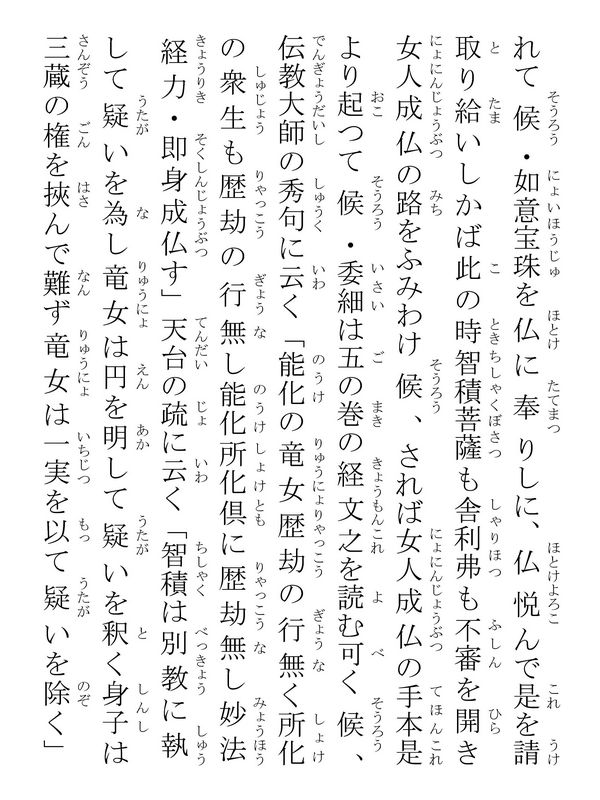 れて候・如意宝珠を仏に奉りしに、仏悦んで是を請
取り給いしかば此の時智積菩薩も舎利弗も不審を開き
女人成仏の路をふみわけ候、されば女人成仏の手本是
より起つて候・委細は五の巻の経文之を読む可く候、
伝教大師の秀句に云く「能化の竜女歴劫の行無く所化
の衆生も歴劫の行無し能化所化倶に歴劫無し妙法
経力・即身成仏す」天台の疏に云く「智積は別教に執
して疑いを為し竜女は円を明して疑いを釈く身子は
三蔵の権を挟んで難ず竜女は一実を以て疑いを除く」